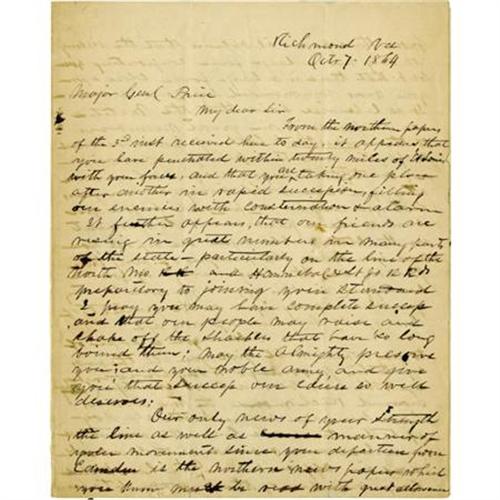 Richmond Va
Octr 7. 1864
Major Genl Price
My dear Sir
From the northern papers
of the 3rd inst received here to day, it appears that
you have penetrated within twenty miles of St Louis
with your forces, and that you are taking one place
after another in rapid succession, filling
our enemies with consternation & alarm
It further appears, that our friends are
rising in great numbers in many parts
of the state - particularly on the line of the
North Mo. and Hannibal & St Jo R Rds
preparatory to joining your Standard
I pray you may have complete success
and that our people may raise and
shake off the shackles that have so long
bound them; may the Almighty preserve
you, and your noble army, and give
you that success our cause so well
deserves:
Our only news of your strength
the line as well as manner of
your movement since your departure from
Camden is the northern news papers which
you know must be read with great allowance